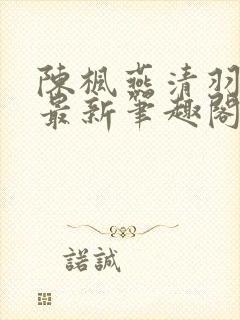 陳楓燕清羽
最新筆趣閣
諾誠